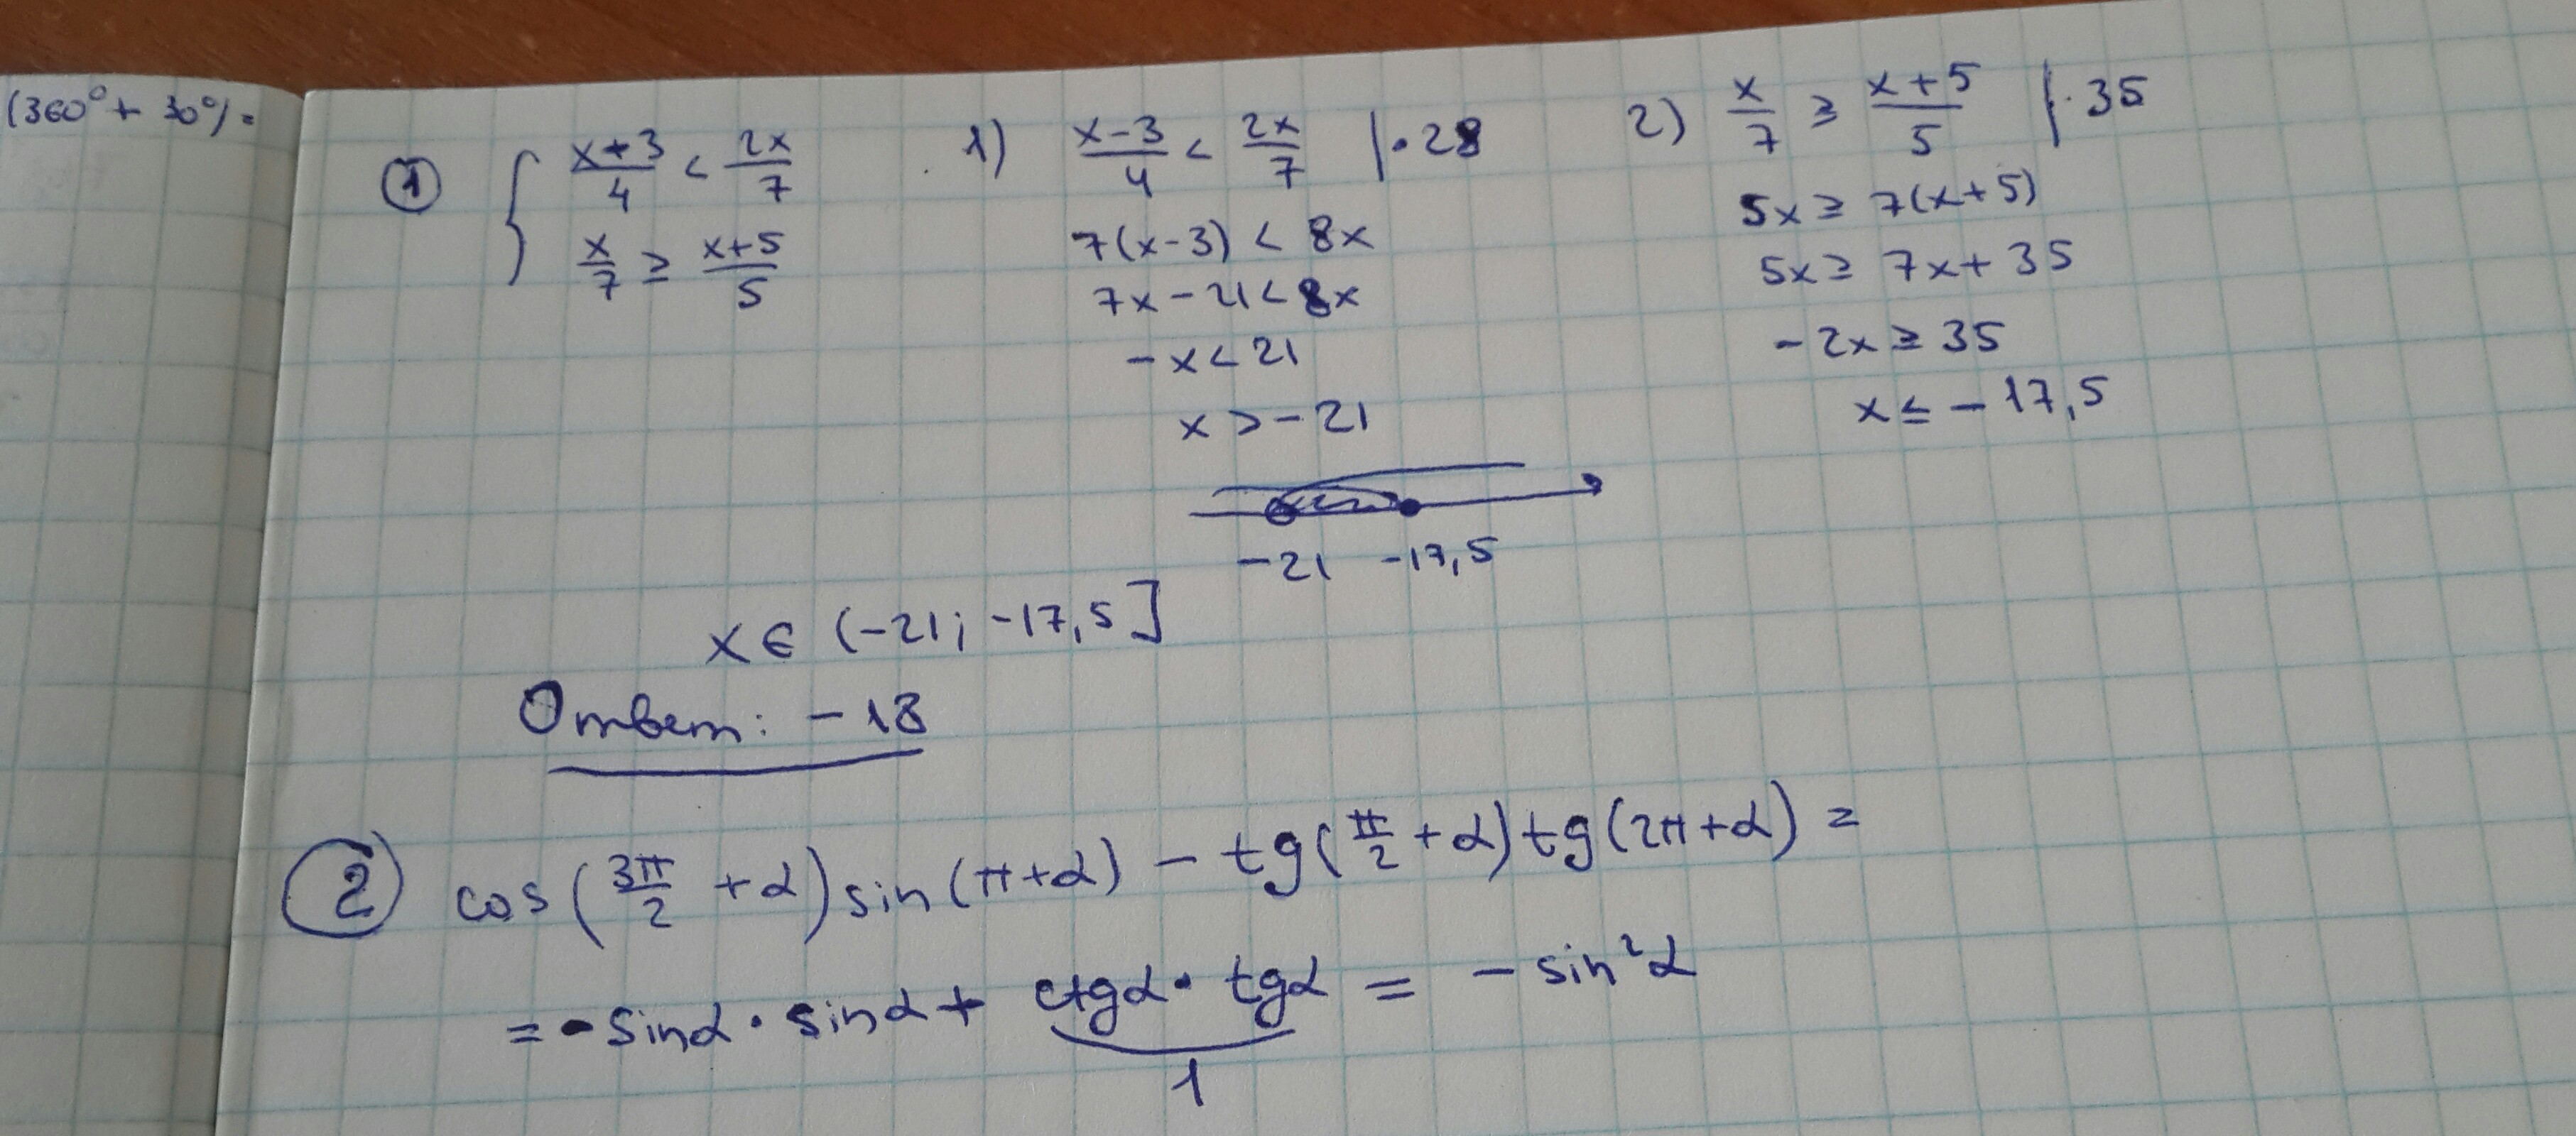 (360° + 30°) =
① { (x+3)/4 < 2x/7
x/7 ≥ (x+5)/5
1) (x-3)/4 < 2x/7 | · 28
7(x-3) < 8x
7x - 21 < 8x
- x < 21
x > - 21
2) x/7 ≥ (x+5)/5 | · 35
5x ≥ 7(x+5)
5x ≥ 7x + 35
- 2x ≥ 35
x ≤ - 17,5
-21 -17,5
x ∈ (-21; -17,5]
Ответ: - 18
② cos(3π/2 + α) sin(π+α) - tg(π/2 + α) tg(2π+α) =
= - sinα · sinα + ctgα · tgα = - sin²α
1